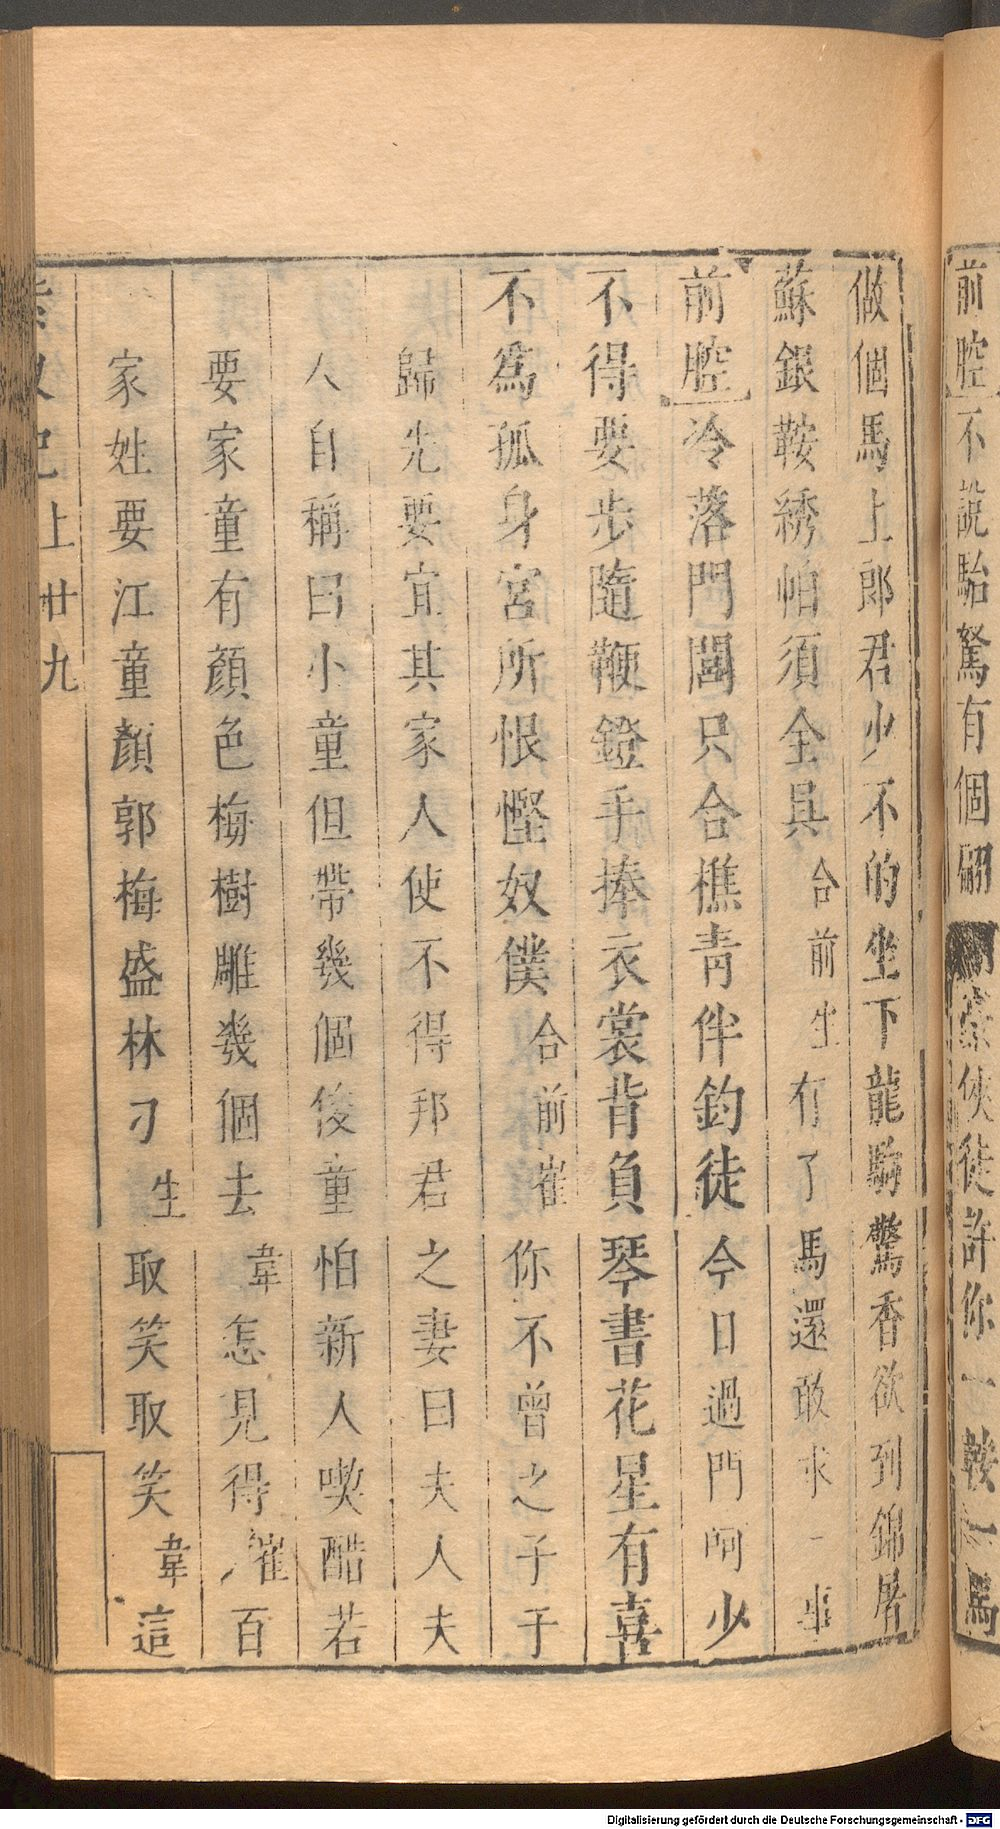 前腔不說駘駑有個翩翩豪俠徒許你一鞍一馬
做個馬上郎君少不的坐下龍駒驚香欲到錦屠
蘇銀鞍綉帕須全具合前生有了馬還敢求一事
前腔冷落門閭只合樵青伴釣徒今日過門呵少
不得要步隨鞭鐙手捧衣裳背負琴書花星有喜
不爲孤身宮所恨慳奴僕合前崔你不曾之子于
歸先要宜其家人使不得邦君之妻曰夫人夫
人自稱曰小童但帶幾個俊童怕新人喫醋若
要家童有顏色梅樹雕幾個去韋怎見得崔百
家姓要江童顏郭梅盛林刁生取笑取笑韋這
紫釵記上廿九
Digitalisierung gefördert durch die Deutsche Forschungsgemeinschaft - DFG